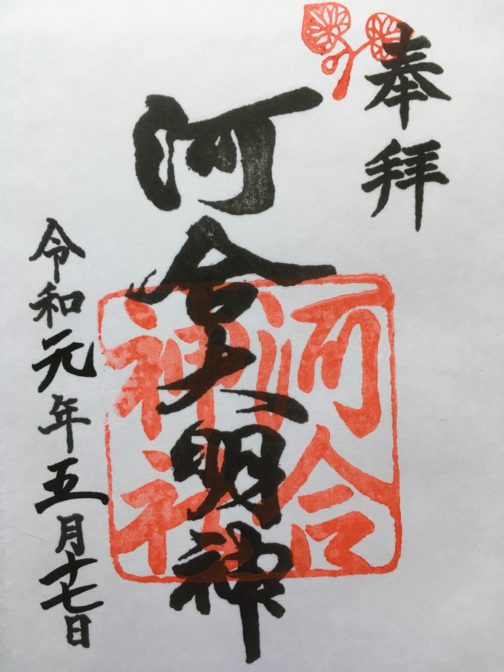 奉拝
河合大明神
河合
神社
令和元年五月十七日